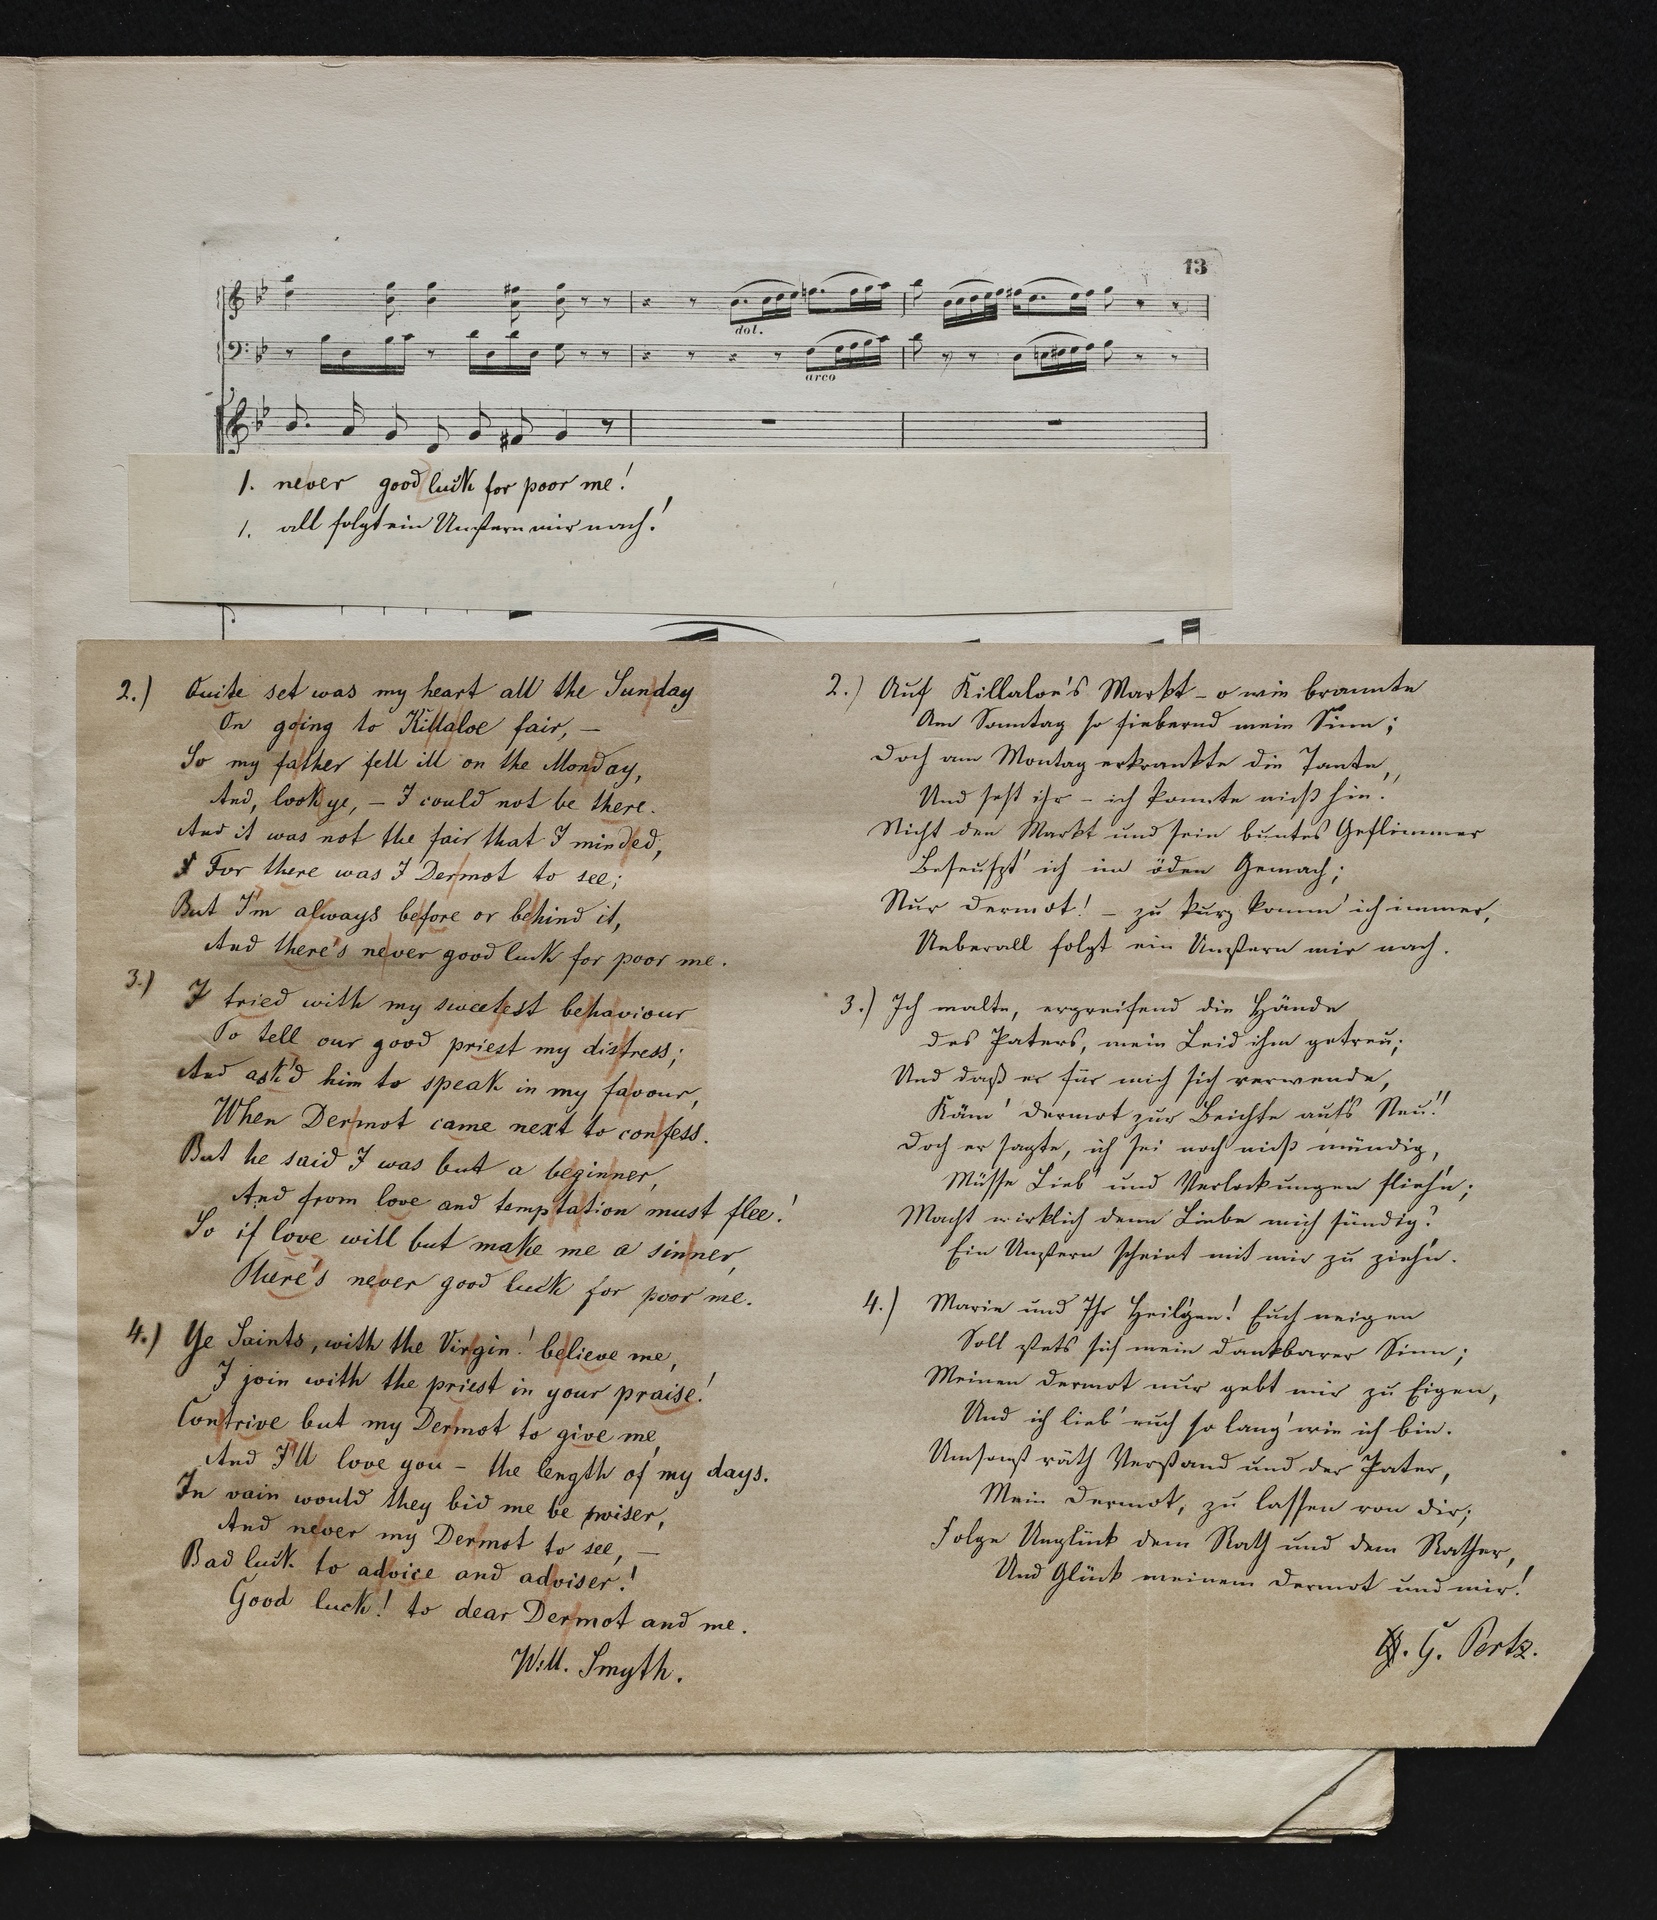 13
dol.
arco
1. never good luck for poor me!
1. all folgt ein Unstern mir nach!
2.) Quite set was my heart all the Sunday
On going to Killaloe fair, —
So my father fell ill on the Monday,
And, look ye, — I could not be there.
And it was not the fair that I minded,
For there was I Dermot to see;
But I'm always before or behind it,
And there's never good luck for poor me.
3.) I tried with my sweetest behaviour
To tell our good priest my distress;
And ask'd him to speak in my favour,
When Dermot came next to confess.
But he said I was but a beginner,
And from love and temptation must flee!
So if love will but make me a sinner,
There's never good luck for poor me.
4.) Ye Saints, with the Virgin! believe me,
I join with the priest in your praise!
Contrive but my Dermot to give me,
And I'll love you — the length of my days.
In vain would they bid me be wiser,
And never my Dermot to see, —
Bad luck to advice and adviser!
Good luck! to dear Dermot and me.
Will. Smyth.
2.) Auf Killaloe's Markt – o wie brannte
Am Sonntag so fiebernd mein Sinn;
Doch am Montag erkrankte die Tante,
Und seht ihr – ich konnte nicht hin!
Nicht den Markt und sein buntes Geflimmer
Beseufzt' ich im öden Gemach;
Nur Dermot! – zu kurz komm' ich immer,
Ueberall folgt ein Unstern mir nach.
3.) Ich malte, ergreifend die Hände
des Paters, mein Leid ihm getreu;
Und daß er für mich sich verwende,
Käm' Dermot zur Beichte auf's Neu!
Doch er sagte, ich sei noch nicht mündig,
Müsse Lieb' und Verlockungen flieh'n;
Macht wirklich denn Liebe mich sündig?
Ein Unstern scheint mit mir zu zieh'n.
4.) Marie und Ihr Heil'gen! Euch neigen
Soll stets sich mein dankbarer Sinn;
Meinen Dermot nur gebt mir zu Eigen,
Und ich lieb' euch so lang' wie ich bin.
Umsonst räth Verstand und der Pater,
Mein Dermot, zu lassen von dir;
Folge Unglück dem Rath und dem Rather,
Und Glück meinem Dermot und mir!
G. Pertz.